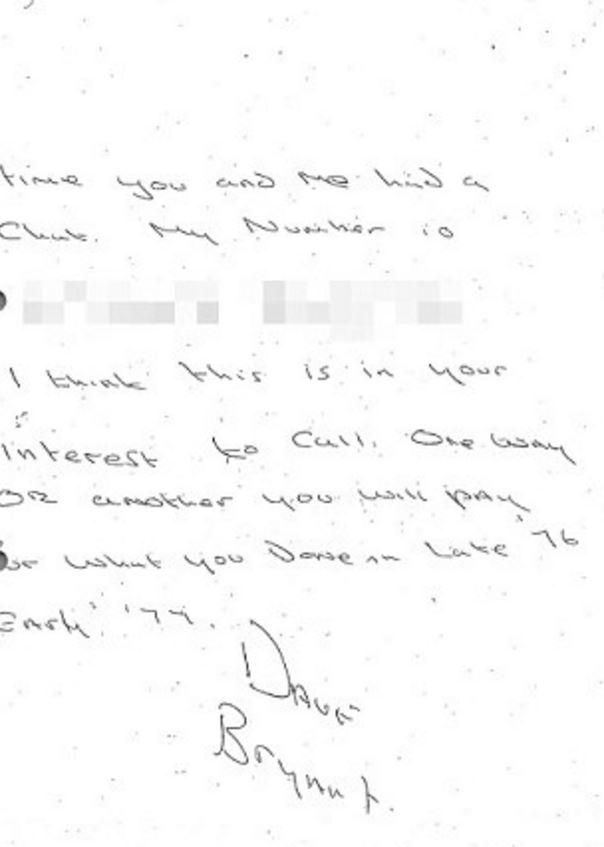 time you and me had a
Chat. My Number is
I think this is in your
interest to Call. One Way
OR another you will pay
what you Done in Late '76
Early '77.
Dave
Bryant.